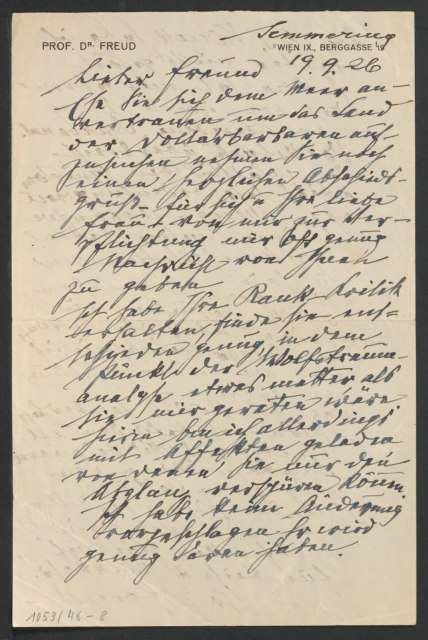 Semmering
PROF. DR. FREUD
WIEN IX., BERGGASSE 19
19. 9. 26
Lieber Freund
Ehe Sie sich dem Meer an-
vertrauen um das Land
der Dollarbarbaren auf-
zusuchen nehmen Sie noch
einen herzlichen Abschieds-
gruß für sich u Ihre liebe
Frau u von mir zur Ver-
pflichtung mir oft genug
Nachricht von Ihnen
zu geben
Ich habe Ihre Rank-Kritik
erhalten, finde sie ent-
schieden genug, in dem
Punkt der Wolfstraum-
analyse etwas matter als
sie mir geraten wäre
hierin bin ich allerdings
mit Affekten geladen
von denen Sie nur den
Abglanz verspüren können
Ich habe keine Änderung
vorgeschlagen Er wird
genug daran haben.
1053/46-8